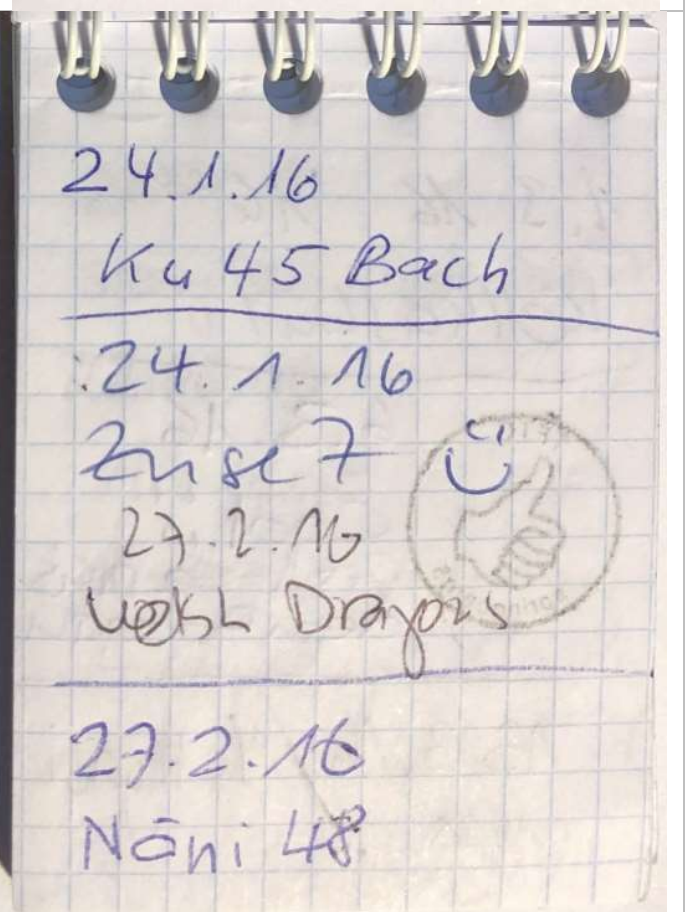 24.1.16
Ku 45 Bach
24.1.16
Zuse 7
27.2.16
Welsh Dragons
27.2.16
Nāni 48